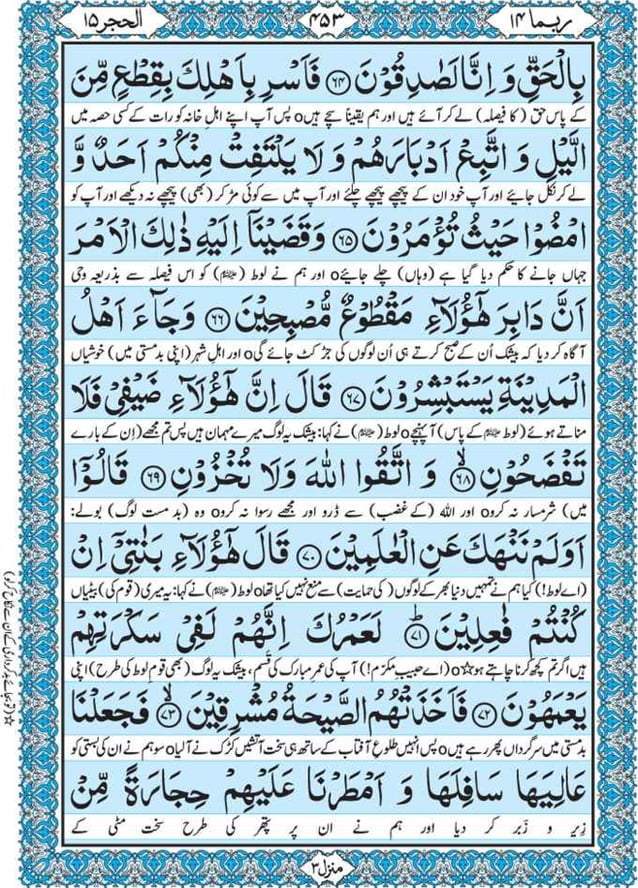 ربما ١٤ ۴۵۳ الحجر ١٥
بِالْحَقِّ وَ اِنَّا لَصٰدِقُوْنَ ﴿۶۴﴾ فَاَسْرِ بِاَهْلِكَ بِقِطْعٍ مِّنَ
کے پاس حق (کا فیصلہ) لے کر آئے ہیں اور ہم یقیناً سچے ہیںo پس آپ اپنے اہلِ خانہ کو رات کے کسی حصہ میں
الَّيْلِ وَ اتَّبِعْ اَدْبَارَهُمْ وَ لَا يَلْتَفِتْ مِنْكُمْ اَحَدٌ وَّ
لے کر نکل جائیے اور آپ خود ان کے پیچھے پیچھے چلئے اور آپ میں سے کوئی مڑ کر (بھی) پیچھے نہ دیکھے اور آپ کو
امْضُوْا حَيْثُ تُؤْمَرُوْنَ ﴿۶۵﴾ وَقَضَيْنَاۤ اِلَيْهِ ذٰلِكَ الْاَمْرَ
جہاں جانے کا حکم دیا گیا ہے (وہاں) چلے جائیےo اور ہم نے لوط (علیہ السلام) کو اس فیصلہ سے بذریعہ وحی
اَنَّ دَابِرَ هٰۤؤُلَآءِ مَقْطُوْعٌ مُّصْبِحِيْنَ ﴿۶۶﴾ وَجَآءَ اَهْلُ
آگاہ کر دیا کہ بیشک اُن کے صبح کرتے ہی اُن لوگوں کی جڑ کٹ جائے گیo اور اہلِ شہر (اپنی بدمستی میں) خوشیاں
الْمَدِيْنَةِ يَسْتَبْشِرُوْنَ ﴿۶۷﴾ قَالَ اِنَّ هٰۤؤُلَآءِ ضَيْفِيْ فَلَا
مناتے ہوئے (لوط علیہ السلام کے پاس) آ پہنچےo لوط (علیہ السلام) نے کہا: بیشک یہ لوگ میرے مہمان ہیں پس تم مجھے (اِن کے بارے
تَفْضَحُوْنِ ﴿۶۸﴾ۙ وَ اتَّقُوا اللّٰهَ وَلَا تُخْزُوْنِ ﴿۶۹﴾ قَالُوْۤا
میں) شرمسار نہ کروo اور اللہ (کے غضب) سے ڈرو اور مجھے رسوا نہ کروo وہ (بد مست لوگ) بولے:
اَوَلَمْ نَنْهَكَ عَنِ الْعٰلَمِيْنَ ﴿۷۰﴾ قَالَ هٰۤؤُلَآءِ بَنٰتِيْۤ اِنْ
(اے لوط!) کیا ہم نے تمہیں دنیا بھر کے لوگوں (کی حمایت) سے منع نہیں کیا تھاo لوط (علیہ السلام) نے کہا: یہ میری (قوم کی) بیٹیاں
كُنْتُمْ فٰعِلِيْنَ ﴿۷۱﴾ؕ لَعَمْرُكَ اِنَّهُمْ لَفِيْ سَكْرَتِهِمْ
ہیں اگر تم کچھ کرنا چاہتے ہوo☆ (اے حبیبِ مکرّم!) آپ کی عمرِ مبارک کی قَسم، بیشک یہ لوگ (بھی قومِ لوط کی طرح) اپنی
يَعْمَهُوْنَ ﴿۷۲﴾ فَاَخَذَتْهُمُ الصَّيْحَةُ مُشْرِقِيْنَ ﴿۷۳﴾ۙ فَجَعَلْنَا
بدمستی میں سرگرداں پھر رہے ہیںo پس انہیں طلوعِ آفتاب کے ساتھ ہی سخت آتشیں کڑک نے آلیاo سو ہم نے ان کی بستی کو
عَالِيَهَا سَافِلَهَا وَ اَمْطَرْنَا عَلَيْهِمْ حِجَارَةً مِّنْ
زِیر و زَبر کر دیا اور ہم نے ان پر پتھر کی طرح سخت مٹی کے
منزل ٣